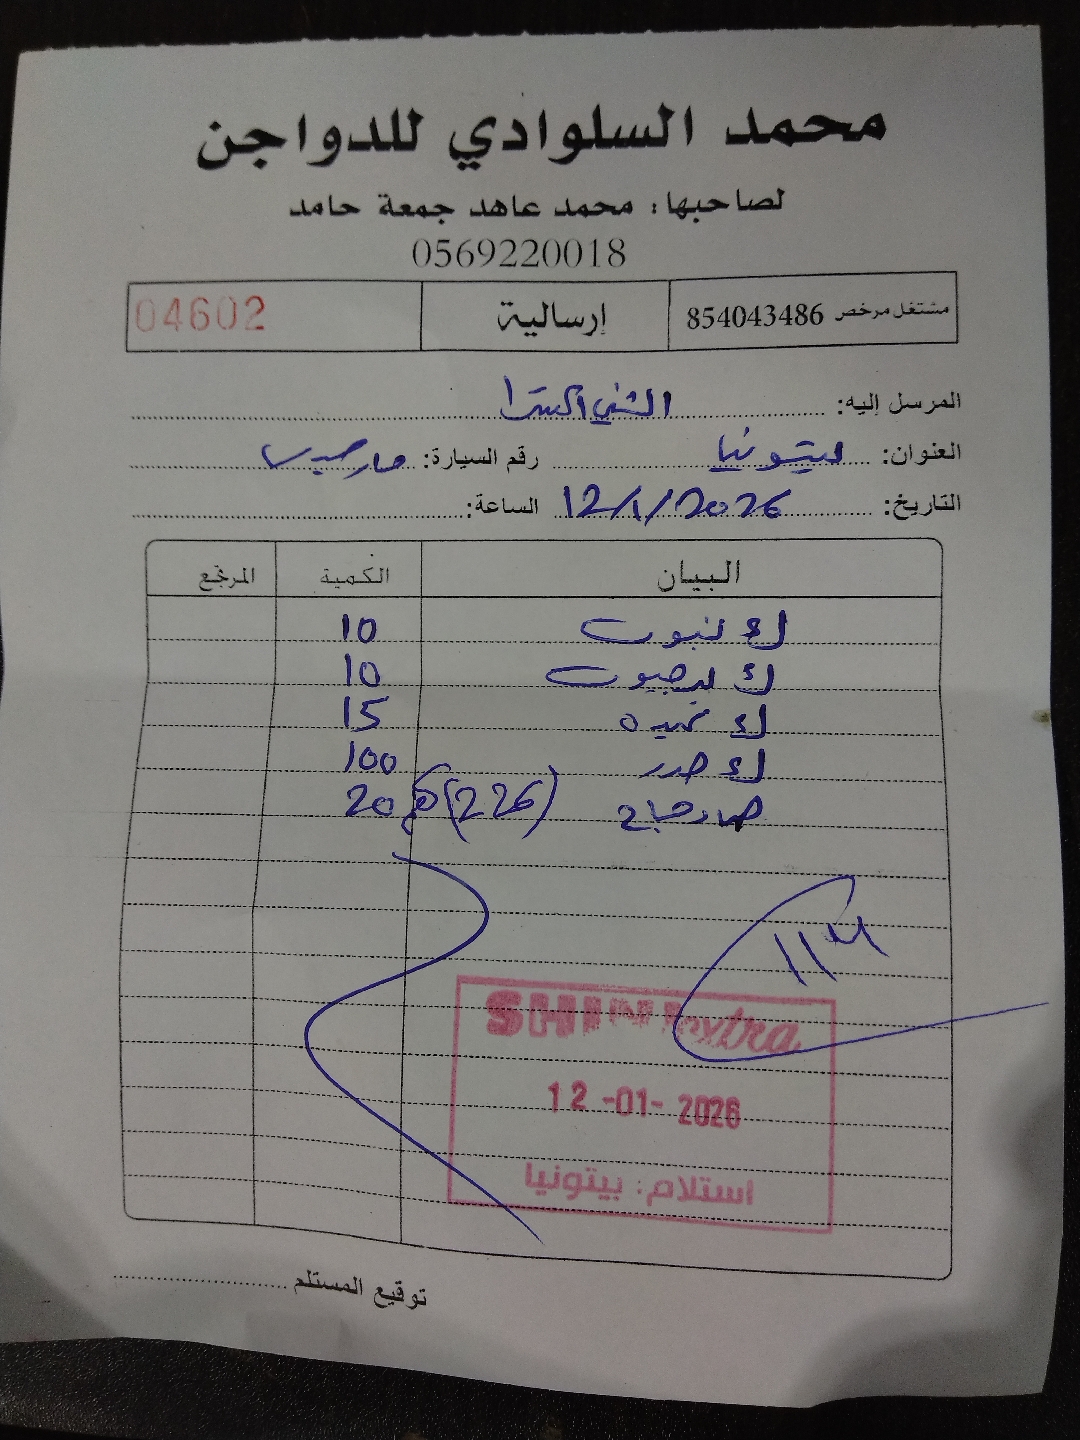 محمد السلوادي للدواجن
لصاحبها: محمد عاهد جمعة حامد
0569220018
مشتغل مرخص 854043486 إرسالية 04602
المرسل إليه: الشني اكسترا
العنوان: بيتونيا رقم السيارة:
التاريخ: 12/1/2026 الساعة:
البيان الكمية المرتجع
10
10
15
100
(226) 20
SHINI extra
12-01-2026
استلام: بيتونيا
توقيع المستلم